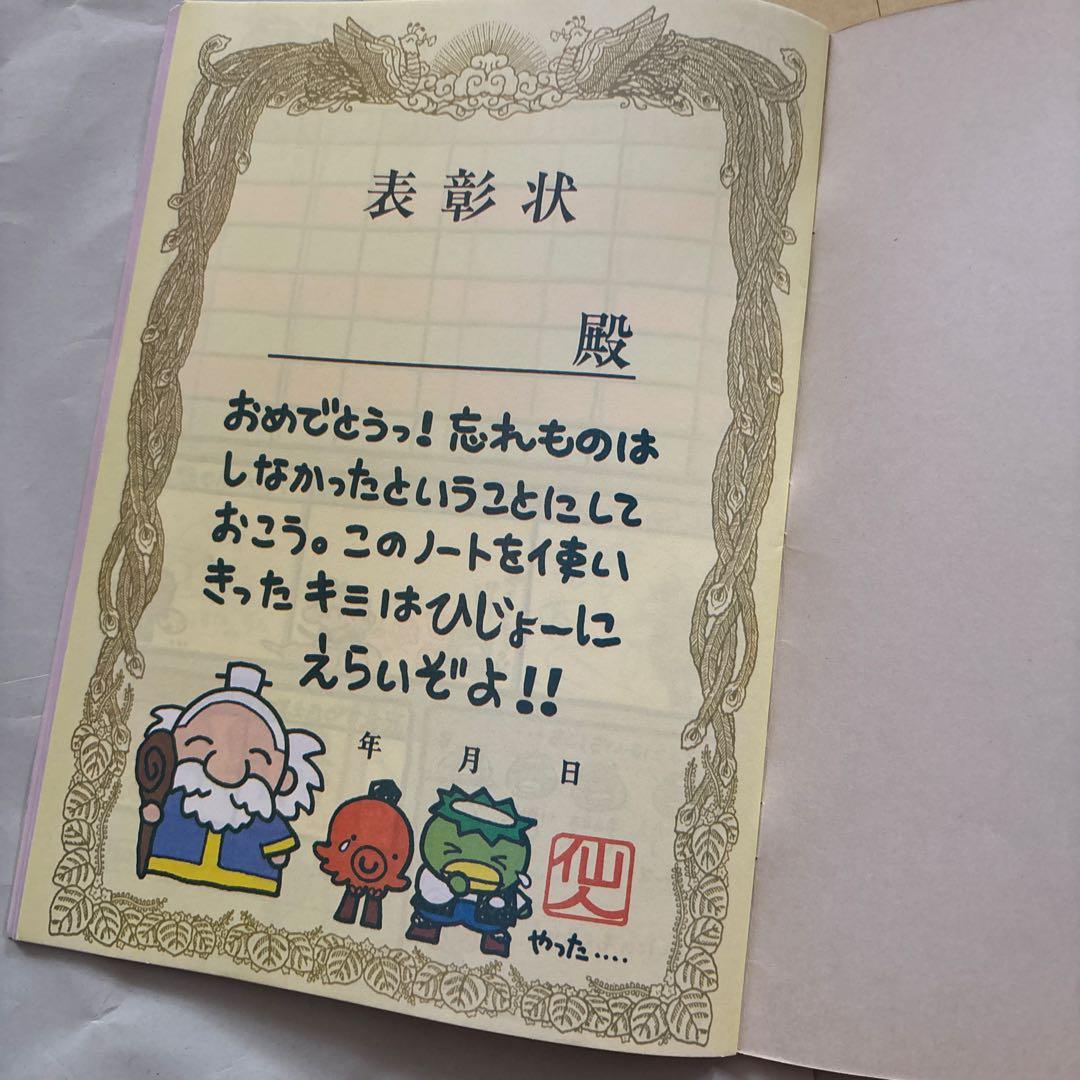 表彰状
殿
おめでとうっ！忘れものは
しなかったということにして
おこう。このノートを使い
きったキミはひじょーに
えらいぞよ！！
年 月 日
仙人
やった‥‥